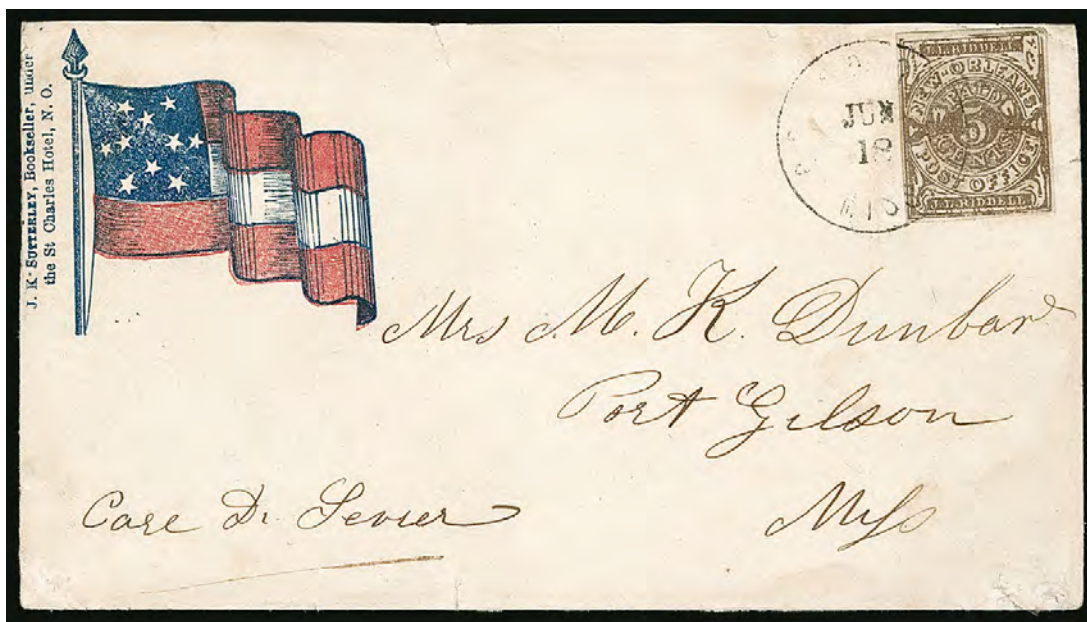 J. K. SUTTERLEY, Bookseller, under
the St Charles Hotel, N. O.
JUN
18
MISS
J.L.RIDDELL
NEW-ORLEANS
PAID
5
CENTS
POST OFFICE
J.L.RIDDELL
Mrs M. K. Dunbar
Port Gilson
Miss
Care Dr Sevier